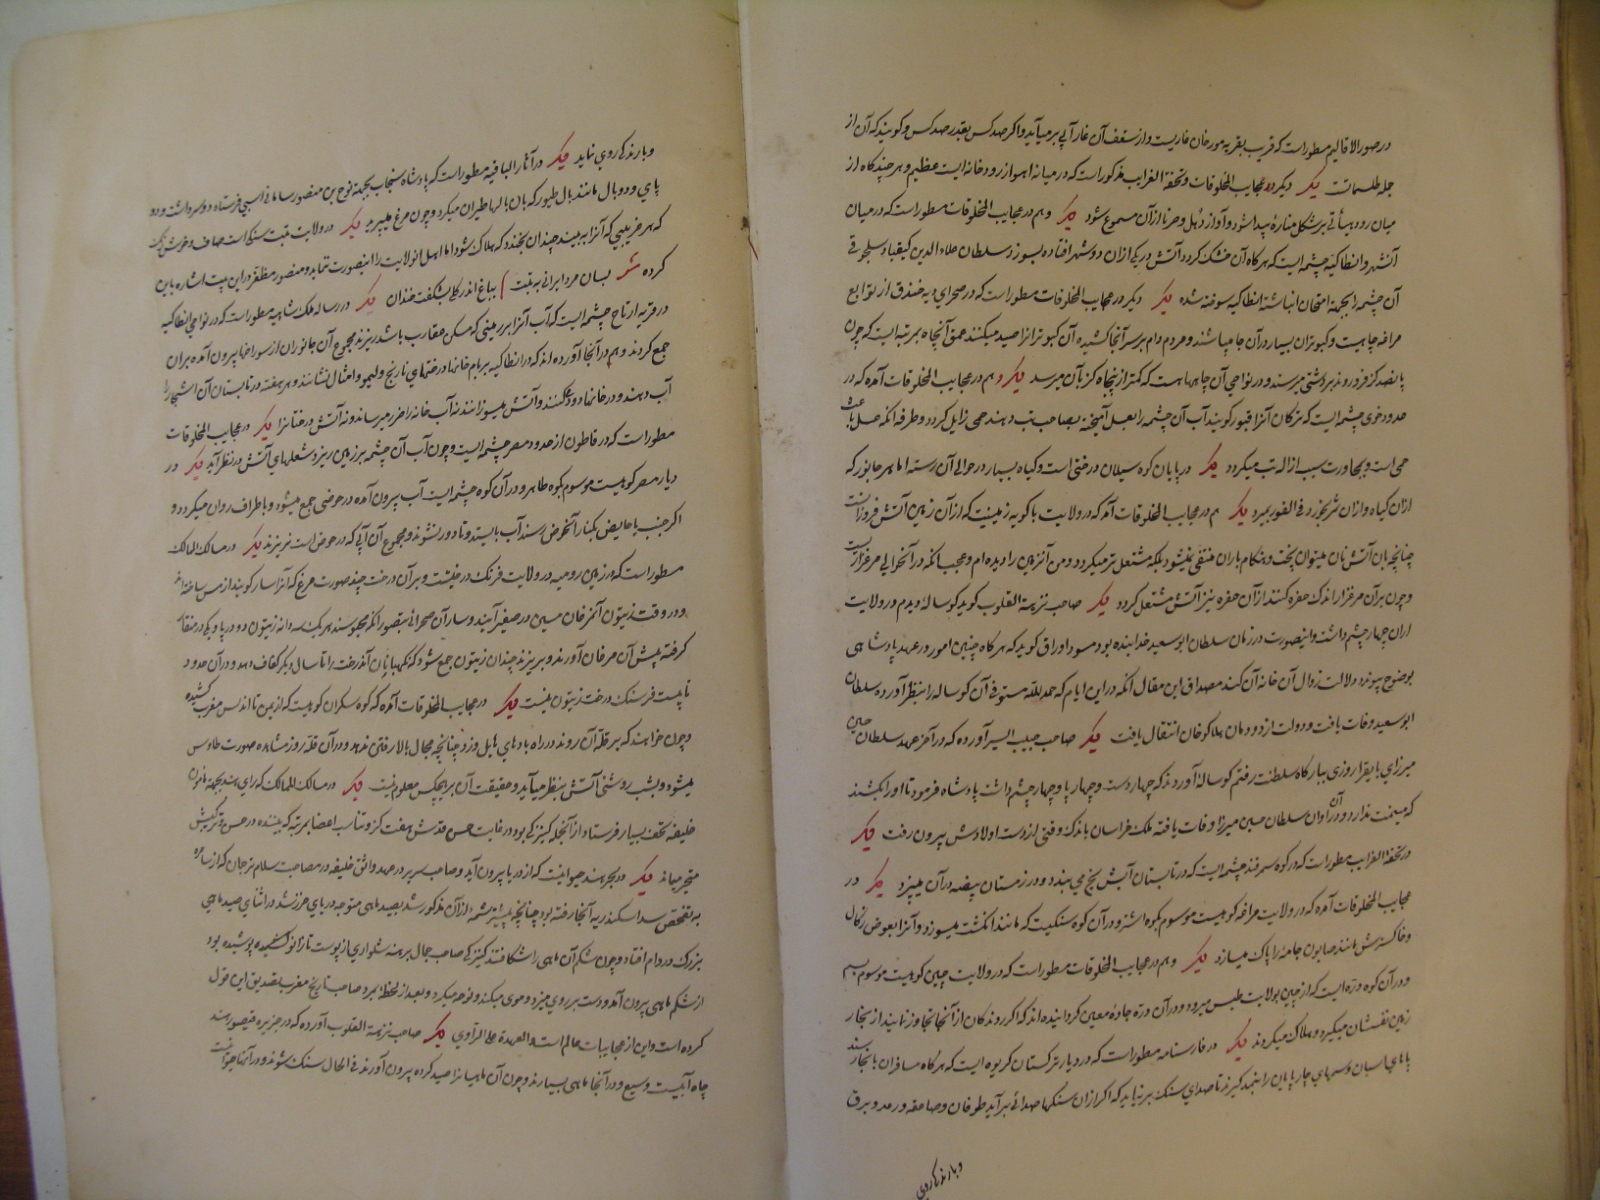 در صور الاقالیم مسطور است که قریب بقریه مورخان غاریست و از سقف آن غار آبی بر میآید و اکر صد کس بقدر صد کس و کویند که آن از
جمله طلسمات دیکر در عجایب المخلوقات و تحفة الغرایب مذکور است که در میانه اهواز رودخانه ایست عظیم و هر چند کاه از
میان رود هیأتی بر شکل مناره پیدا شود و آواز دهل و صرنا از آن مسموع شود دیکر و هم در عجایب المخلوقات مسطور است که در میان
آنشهر و انطاکیه چشمه ایست که هرکاه آن خشک کردد آتش در یکی از آن دو شهر افتاده بسوزد و سلطان علاء الدین کیقباد سلجوقی
آن چشمه را بجهة امتحان انباشته انطاکیه سوخته شده دیکر دیکر در عجایب المخلوقات مسطور است که در صحرای دیه خندق از توابع
مراغه چاهیست و کبوتران بسیار در آن جا میباشند و مردم دام بر سر آنجا کشیده آن کبوترانرا صید میکنند عمق آنچاه بمرتبه ایست که چون
پانصد کز فرو روند بروشنی میرسند و در نواحی آن چاهها هست که کمتر از پنجاه کز بآن میرسد دیکر و هم در عجایب المخلوقات آمده که در
حدود خوی چشمه ایست که ترکان آنرا قنقور کویند آب آن چشمه را بعسل آمیخته بصاحب تب دهند حمی زایل کردد و طرفه آنکه عسل باعث
حمی است و بمجاورت سبب ازاله تب میکردد دیکر در پایان کوه سبلان درختی است و کیاه بسیار در حوالی آن رسته اما هر جانور که
ازان کیاه و ازان ثمر بخورد فی الفور بمیرد دیکر هم در عجایب المخلوقات آمده که در ولایت باکویه زمینیست که از آن زمین آتش فروزانست
چنانچه بآن آتش نان میتوان پخت و بهنکام باران منتفی نمیشود بلکه مشتعل تر میکردد و من آنزمین را دیده ام و عجب آنکه در آنحوالی مرغزاریست
و چون بر آن مرغزار اندک حفره کنند از آن حفره نیز آتش مشتعل کردد دیکر صاحب نزهة القلوب کوید که کوساله دیدم در ولایت
اران چهار چشم داشت و اینصورت در زمان سلطان ابو سعید خدا بنده بود مسود اوراق کوید که هرکاه چنین امور در عهد پادشاهی
بوضوح پیوندد دلالت بر زوال آن خانه آن کند مصداق این مقال آنکه در این ایام که حمد لله مستوفی آن کوساله را بنظر آورده سلطان
ابو سعید وفات یافت و دولت از دودمان هلاکو خان انتقال یافت دیکر صاحب حبیب السیر آورده که در آخر عهد سلطان حسین
میرزای بایقرا روزی ببارکاه سلطنت رفتم کوساله آوردند که چهار دست و چهار پا و چهار چشم داشت پادشاه فرمود تا او را بکشند
که میمنت ندارد و در آن اوان سلطان حسین میرزا وفات یافته ملک خراسان باندک وقتی از دست اولادش بیرون رفت دیکر
در تحفة الغرایب مسطور است که در کوه سمرقند چشمه ایست که در تابستان آبش یخ می بندد و در زمستان بیضه در آن میپزد دیکر در
عجایب المخلوقات آمده که در ولایت مراغه کوهیست موسوم بکوه اشتر و در آن کوه سنکیست که مانند انکشت میسوزد و آنرا بعوض زکال
و خاکسترش مانند صابون جامه را پاک میسازد دیکر و هم در عجایب المخلوقات مسطور است که در ولایت چین کوهیست موسوم بسم
و در آن کوه دره ایست که از چین بولایت طبس میرود و در آن دره جادهٔ معین کردانیده اند که اکر روندکان از آنجا تجاوز نمایند از بخار
زمین نفسشان میکیرد و هلاک میکردند دیکر در فارسنامه مسطور است که در دیار ترکستان کریوه ایست که هرکاه مسافران بآنجا رسند
پاهای اسبان و سمهای چارپایان را بنمد کیرند تا صدای سنک بر نیاید که اکر از ان سنکها صدائی بر آید طوفان و صاعقه و رعد و برق
و بارندکی روی
و بارندکی روی نماید دیکر در آثار الباقیه مسطور است که پادشاه سنجاب بجهة نوح بن منصور سامانی اسبی فرستاده دو سر داشت و دو
پای و دو بال مانند بال طیور که بآن بالها طیران میکرد و چون مرغ میپرید دیکر در ولایت تبت سنکی است صاف و خوش رنک
که هر غریبی که آنرا به بیند چندان بخندد که هلاک شود اما اهل انولایت را اینصورت ننماید و منصور مظفر در این بیت اشاره باین
کرده شعر بسان مرد ایرانی به تبت بباغ اندر کل بشکفت خندان دیکر در رساله ملک شاهیه مسطور است که در نواحی انطاکیه
در قریه ارتاح چشمه ایست که آب آنرا بر زمینی که مسکن عقارب باشد ریزند مجموع آن جانوران از سوراخها بیرون آمده بر آن
جمع کردند و هم در آنجا آورده اند که در انطاکیه بر بام خانها درختهای نارنج و لیمو و امثال نشانند و هر هفته در تابستان آن اشجار را
آب دهند و در خانها دود میکنند و آتش میسوزانند نه آب خانه را ضرر میرساند و نه آتش درختانرا دیکر در عجایب المخلوقات
مسطور است که در قاطون از حدود مصر چشمه ایست و چون آب آن چشمه بر زمین ریزد شعلهای آتش در نظر آید دیکر در
دیار مصر کوهیست موسوم بکوه طاهر و در آن کوه چشمه ایست آب بیرون آمده در حوضی جمع میشود و باطراف روان میکردد و
اکر جنب یا حایض بکنار آنحوض رسند آب بایستد و تا دور نشوند و مجموع آن آبی که در حوض است نریزند دیکر در مسالک الممالک
مسطور است که در زمین رومیه در ولایت فرنک درختیست و بر آن درخت چند صورت مرغ که آنرا سار کویند از مس ساخته اند
و در وقت زیتون آنمرغان مسین در صفیر آیند و سار آن صحرائی بتصور آنکه محبوسند هر یک سه دانه زیتون دو در پا و یکی در منقار
کرفته پیش آن مرغان آورند و بریزند چندان زیتون جمع شود که نکهبانان آندرخت را تا سال دیکر کفاف دهد و در آن حدود
تا بیست فرسنک درخت زیتون نیست دیکر در عجایب المخلوقات آمده که کوه سکران کوهیست که از یمن تا اندلس مغرب کشیده
و چون خواهند که بر قلّه آن روند در راه بادهای هایل وزد چنانچه مجال بالا رفتن ندهد و در آن قلّه روز مشاهده صورت طاوس
میشود و بشب روشنی آتش بنظر میآید و حقیقت آن بر هیچکس معلوم نیست دیکر در مسالک الممالک که رای هند بجهة مامون
خلیفه تحف بسیار فرستاد از آنجمله کنیزکی بود در غایت حسن قدش هفت کز و تناسب اعضا بمرتبه که بیننده در حسن و ترکیبش
متحیر میماند دیکر در بحر هند حیوانیست که از دریا بیرون آید و صاحب سریر در عهد واثق خلیفه در مصاحبت سلام ترجمان که از سامره
به تفحّص سد اسکندریه آنجا رفته بود چنانچه پیشتر شمهٔ از آن مذکور شد بصید ماهی متوجه دریای خزر شد در اثنای صید ماهی
بزرک در دام افتاد و چون شکم آن ماهی را شکافتند کنیزکی صاحب جمال برهنه شلواری از پوست تا زانو کشیده پوشیده بود
از شکم ماهی بیرون آمد و دست بر روی میزد و موی میکند و نوحه میکرد و بعد از لحظه بمرد صاحب تاریخ مغرب تصدیق این قول
کرده است و این از عجایبات عالم است و العهدة علی الرّاوی دیکر صاحب نزهة القلوب آورده که در جزیره قیصور هند
چاه آبیست وسیع و در آنجا ماهی بسیارند و چون آن ماهیانرا صید کرده بیرون آورند فی الحال سنک شوند و در آنها حیوانیست